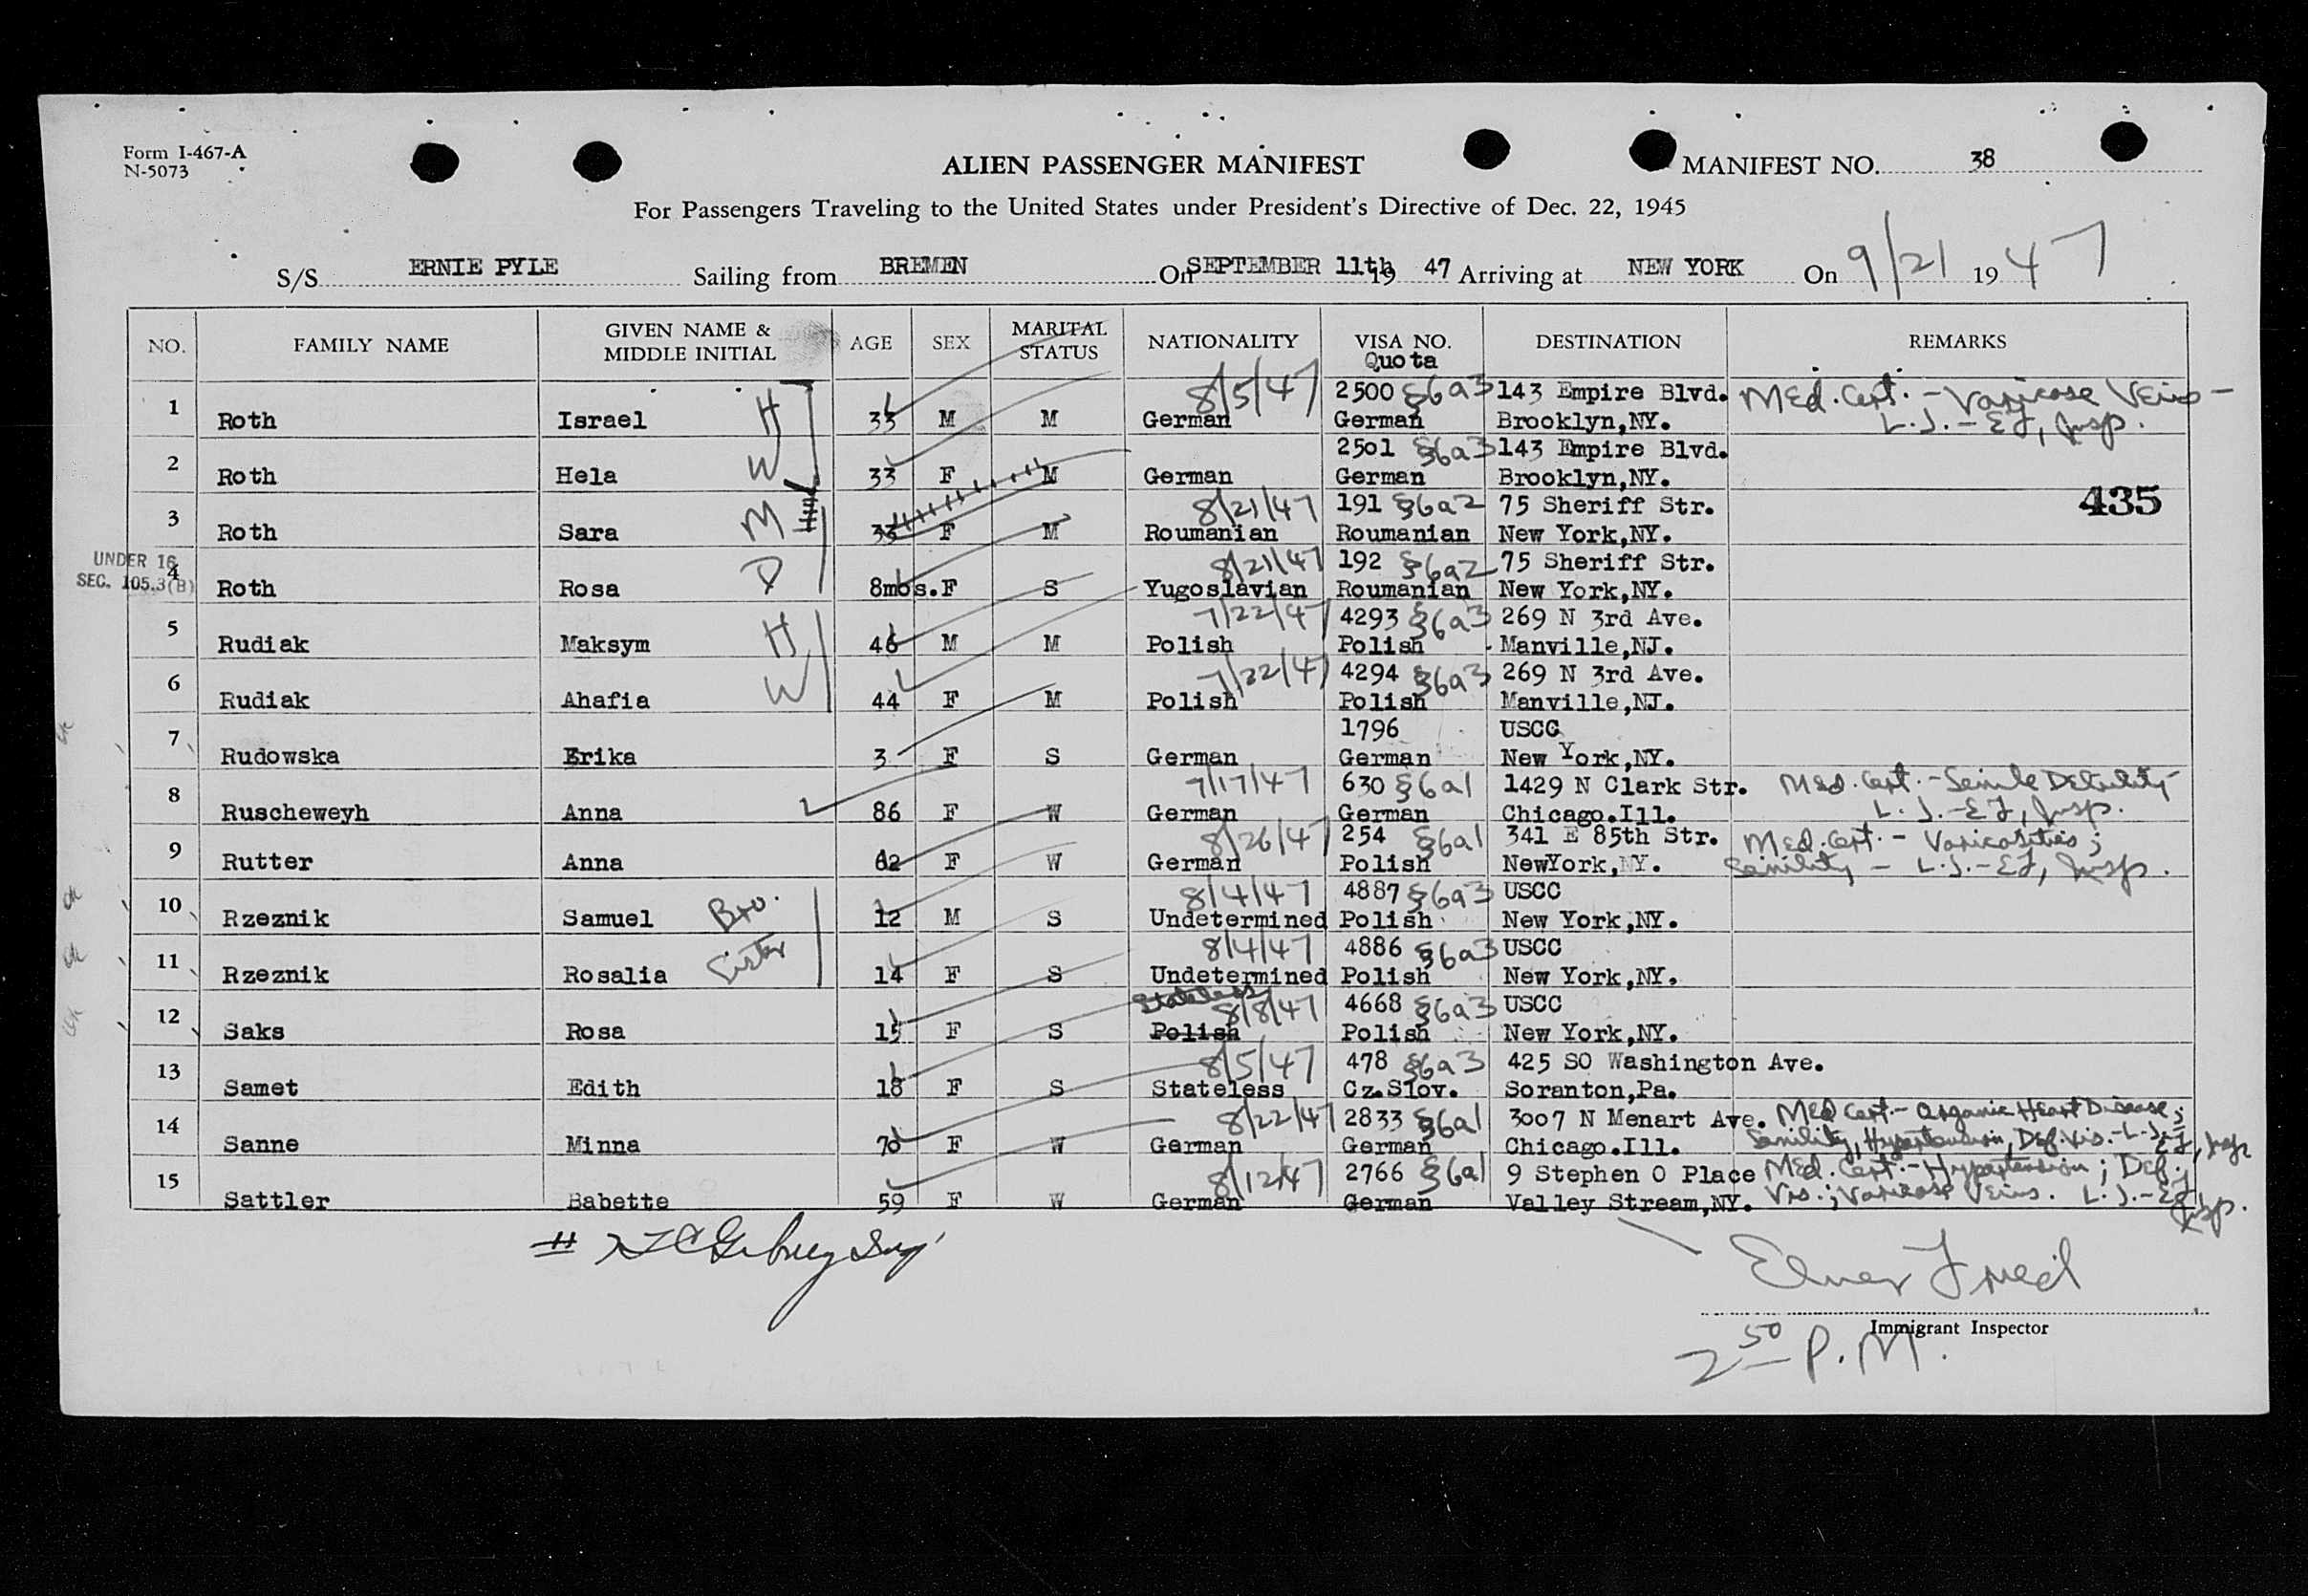 Form I-467-A
N-5073
ALIEN PASSENGER MANIFEST
MANIFEST NO. 38
For Passengers Traveling to the United States under President's Directive of Dec. 22, 1945
S/S ERNIE PYLE Sailing from BREMEN On SEPTEMBER 11th 19 47 Arriving at NEW YORK On 9/21 19 47
NO. FAMILY NAME GIVEN NAME & MIDDLE INITIAL AGE SEX MARITAL STATUS NATIONALITY VISA NO. Quota DESTINATION REMARKS
8/5/47 2500 §6a3 143 Empire Blvd. Med. Cert. - Varicose Veins -
1 Roth Israel H 33 M M German German Brooklyn,NY. L.J.-EF, Insp.
2501 §6a3 143 Empire Blvd.
2 Roth Hela W 33 F M German German Brooklyn,NY.
8/21/47 191 §6a2 75 Sheriff Str. 435
3 Roth Sara M 33 F M Roumanian Roumanian New York,NY.
UNDER 16
SEC. 105.3(B)
8/21/47 192 §6a2 75 Sheriff Str.
4 Roth Rosa D 8mos. F S Yugoslavian Roumanian New York,NY.
7/22/47 4293 §6a3 269 N 3rd Ave.
5 Rudiak Maksym H 46 M M Polish Polish Manville,NJ.
7/22/47 4294 §6a3 269 N 3rd Ave.
6 Rudiak Ahafia W 44 F M Polish Polish Manville,NJ.
1796 USCC
7 Rudowska Erika 3 F S German German New York,NY.
7/17/47 630 §6a1 1429 N Clark Str. Med. Cert. - Senile Debility
8 Ruscheweyh Anna 86 F W German German Chicago.Ill. L.J.-EF, Insp.
8/26/47 254 §6a1 341 E 85th Str. Med. Cert. - Varicosities;
9 Rutter Anna 62 F W German Polish NewYork,NY. Senility - L.J.-EF, Insp.
8/4/47 4887 §6a3 USCC
10 Rzeznik Samuel Bro. 12 M S Undetermined Polish New York,NY.
8/4/47 4886 §6a3 USCC
11 Rzeznik Rosalia Sister 14 F S Undetermined Polish New York,NY.
Stateless 8/8/47 4668 §6a3 USCC
12 Saks Rosa 15 F S Polish Polish New York,NY.
8/5/47 478 §6a3 425 SO Washington Ave.
13 Samet Edith 18 F S Stateless Cz.Slov. Soranton,Pa.
8/22/47 2833 §6a1 3007 N Menart Ave. Med Cert.- Organic Heart Disease;
14 Sanne Minna 70 F W German German Chicago.Ill. Senility, Hypertension, Def. Vis. - L.J. EF, Insp
8/12/47 2766 §6a1 9 Stephen O Place Med. Cert. - Hypertension; Def.
15 Sattler Babette 59 F W German German Valley Stream,NY. Vis.; Varicose Veins. L.J.-EF Insp.
Elmer Fried
Immigrant Inspector
2 50 P.M.